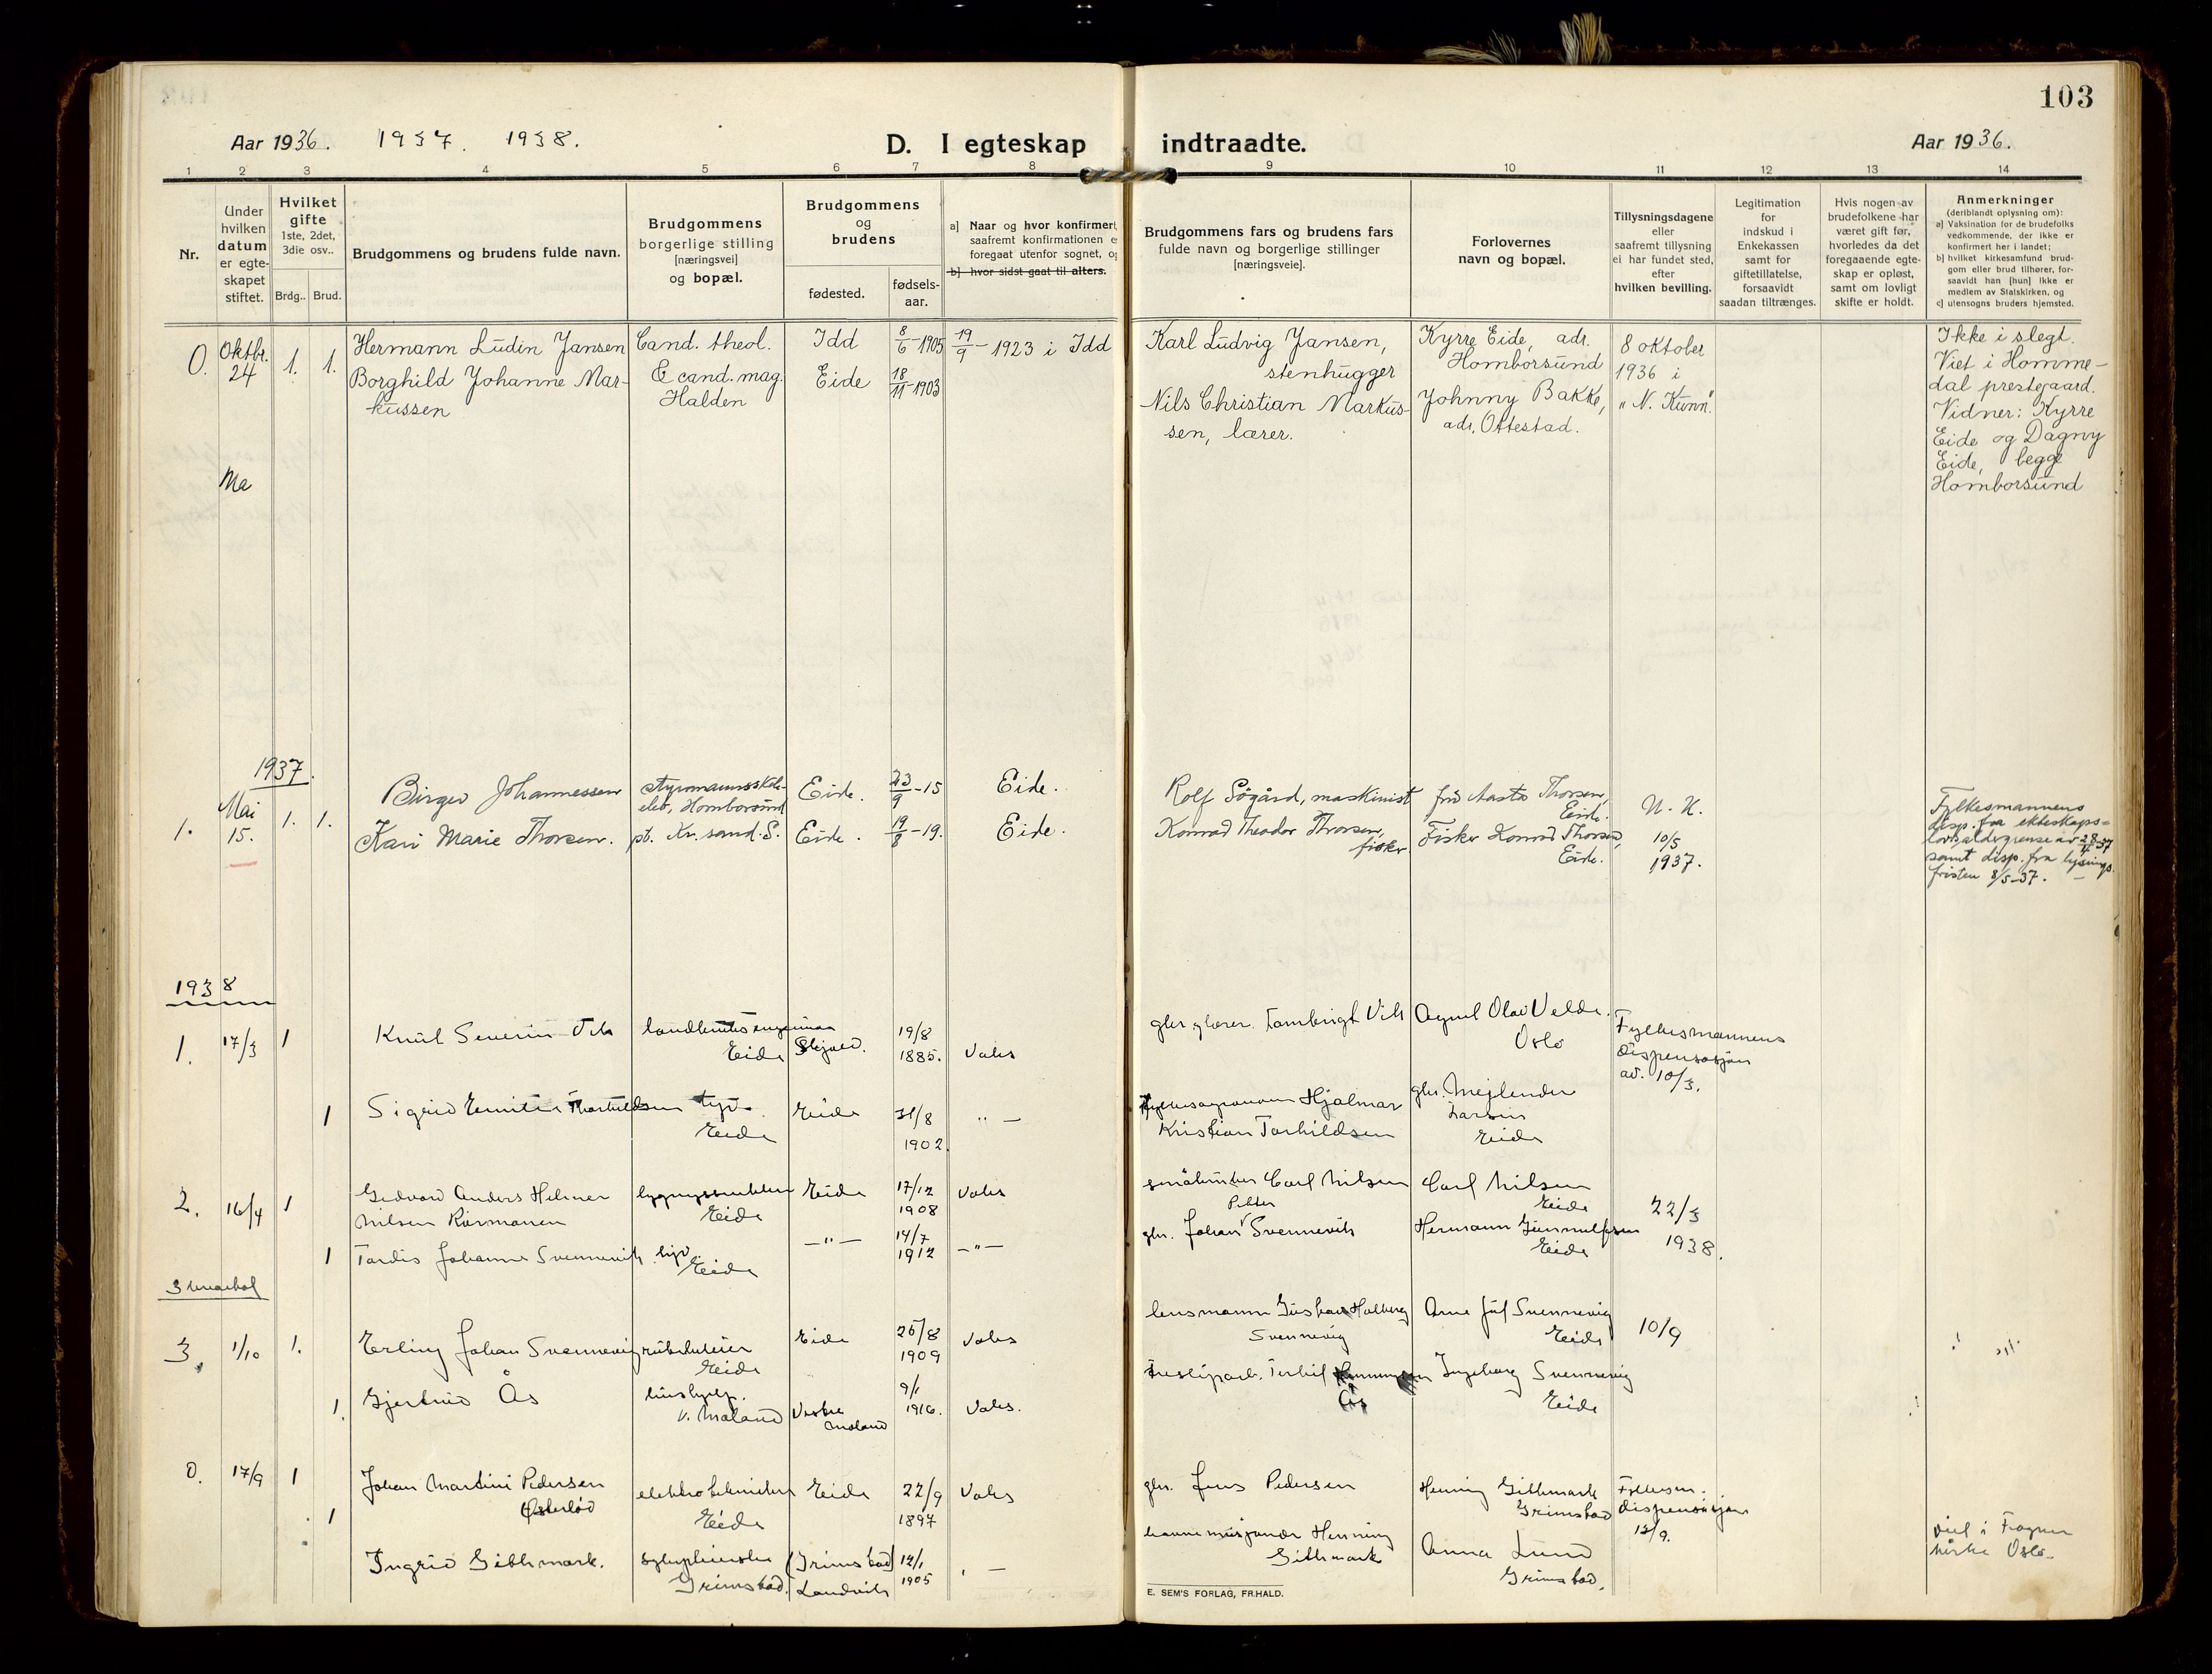 103
Aar 1936. 1937. 1938.
D. I egteskap indtraadte.
Aar 1936.
1 2 3 4 5 6 7 8 9 10 11 12 13 14
Nr.
Under
hvilken
datum
er egte-
skapet
stiftet.
Hvilket
gifte
1ste, 2det,
3die osv..
Brdg.. Brud.
Brudgommens og brudens fulde navn.
Brudgommens
borgerlige stilling
[næringsvei]
og bopæl.
Brudgommens
og
brudens
fødested.
fødsels-
aar.
a) Naar og hvor konfirmert,
saafremt konfirmationen e
foregaat utenfor sognet, og
b) hvor sidst gaat til alters.
Brudgommens fars og brudens fars
fulde navn og borgerlige stillinger
[næringsveie].
Forlovernes
navn og bopæl.
Tillysningsdagene
eller
saafremt tillysning
ei har fundet sted,
efter
hvilken bevilling.
Legitimation
for
indskud i
Enkekassen
samt for
giftetillatelse,
forsaavidt
saadan tiltrænges.
Hvis nogen av
brudefolkene har
været gift før,
hvorledes da det
foregaaende egte-
skap er opløst,
samt om lovligt
skifte er holdt.
Anmerkninger
(deriblandt oplysning om):
a) Vaksination for de brudefolks
vedkommende, der ikke er
konfirmert her i landet;
b) hvilket kirkesamfund brud-
gom eller brud tilhører, for-
saavidt han [hun] ikke er
medlem av Statskirken, og
c) utensogns bruders hjemsted.
0. Oktbr. 24 1. 1.
Hermann Ludin Jansen
Borghild Johanne Mar-
kussen
Cand. theol.
& cand. mag.
Halden
Idd 8/6-1905 19/9-1923 i Idd
Eide 18/11-1903
Karl Ludvig Jansen,
stenhugger
Nils Christian Markus-
sen, lærer.
Kyrre Eide, adr.
Homborsund
Johnny Bakke,
adr. Ottestad.
8 oktober
1936 i
"N. Kunn."
Ikke i slegt.
Viet i Homme-
dal prestegaard.
Vidner: Kyrre
Eide og Dagny
Eide, begge
Homborsund
Ma
1937.
1. Mai 15. 1. 1.
Birger Johannessen
Kari Marie Thorsen.
styrmannsskole-
elev, Homborsund
pt. Kr.sand. S.
Eide. 23/9-15 Eide.
Eide. 19/8-19. Eide.
Rolf Sögård, maskinist
Konrad Theodor Thorsen,
fisker.
frü Aasta Thorsen,
Eide.
Fisker Konrad Thorsen,
Eide.
N. K.
10/5
1937.
Fylkesmannens
disp. fra ekteskaps-
lovs aldergrense av 28/4-37
samt disp. fra lysings-
fristen 8/5-37.
1938
1. 17/3 1
Knut Severin
Eide
19/8
1885. Vaks
Agnul Olav Velde.
Oslo
Fylkesmannens
dispensasjon
av. 10/3.
1 Sigrid
Eide
Eide 31/8
1902. " —
Hjalmar
Kristian Torkildsen
gbr. Mejlender
Larsen
Eide
2. 16/4 1
Gedvard Anders Helmer
Nilsen
Eide
Eide 17/12
1908 Vaks
småbruker Carl Nilsen
Carl Nilsen
Eide
22/3
1938.
1 Tordis Johanne Svennevik
Eide
—"— 14/7
1912 —"—
gbr. Johan Petter Svennevik
Hermann Gunnulfsen
Eide
3. 1/10 1.
Erling Johan Svennevig
Eide
Eide 25/8
1909 Vaks
lensmann Gustav Holberg
Svennevig
Arne Juf Svennevig
Eide
10/9
1. Gjertrud Ås
hushjelp.
V. Moland
Vestre
Moland 9/1
1916. Vaks.
Ås
Ingeborg Svennevig
Eide
0. 17/9 1
Johan Martini Pedersen
Österlöd
elektrotekniker
Eide
Eide 22/9
1897 Vaks
gbr. Jens Pedersen
Henning Githmark
Grimstad
Fylkesm.
dispensasjon
12/9.
1 Ingrid Githmark.
sykepleierske
Grimstad.
(Grimstad)
Landvik 12/1
1905
Henning
Githmark
Anna Lund
Grimstad.
viet i Frogner
kirke Oslo.
E. SEM'S FORLAG, FR.HALD.